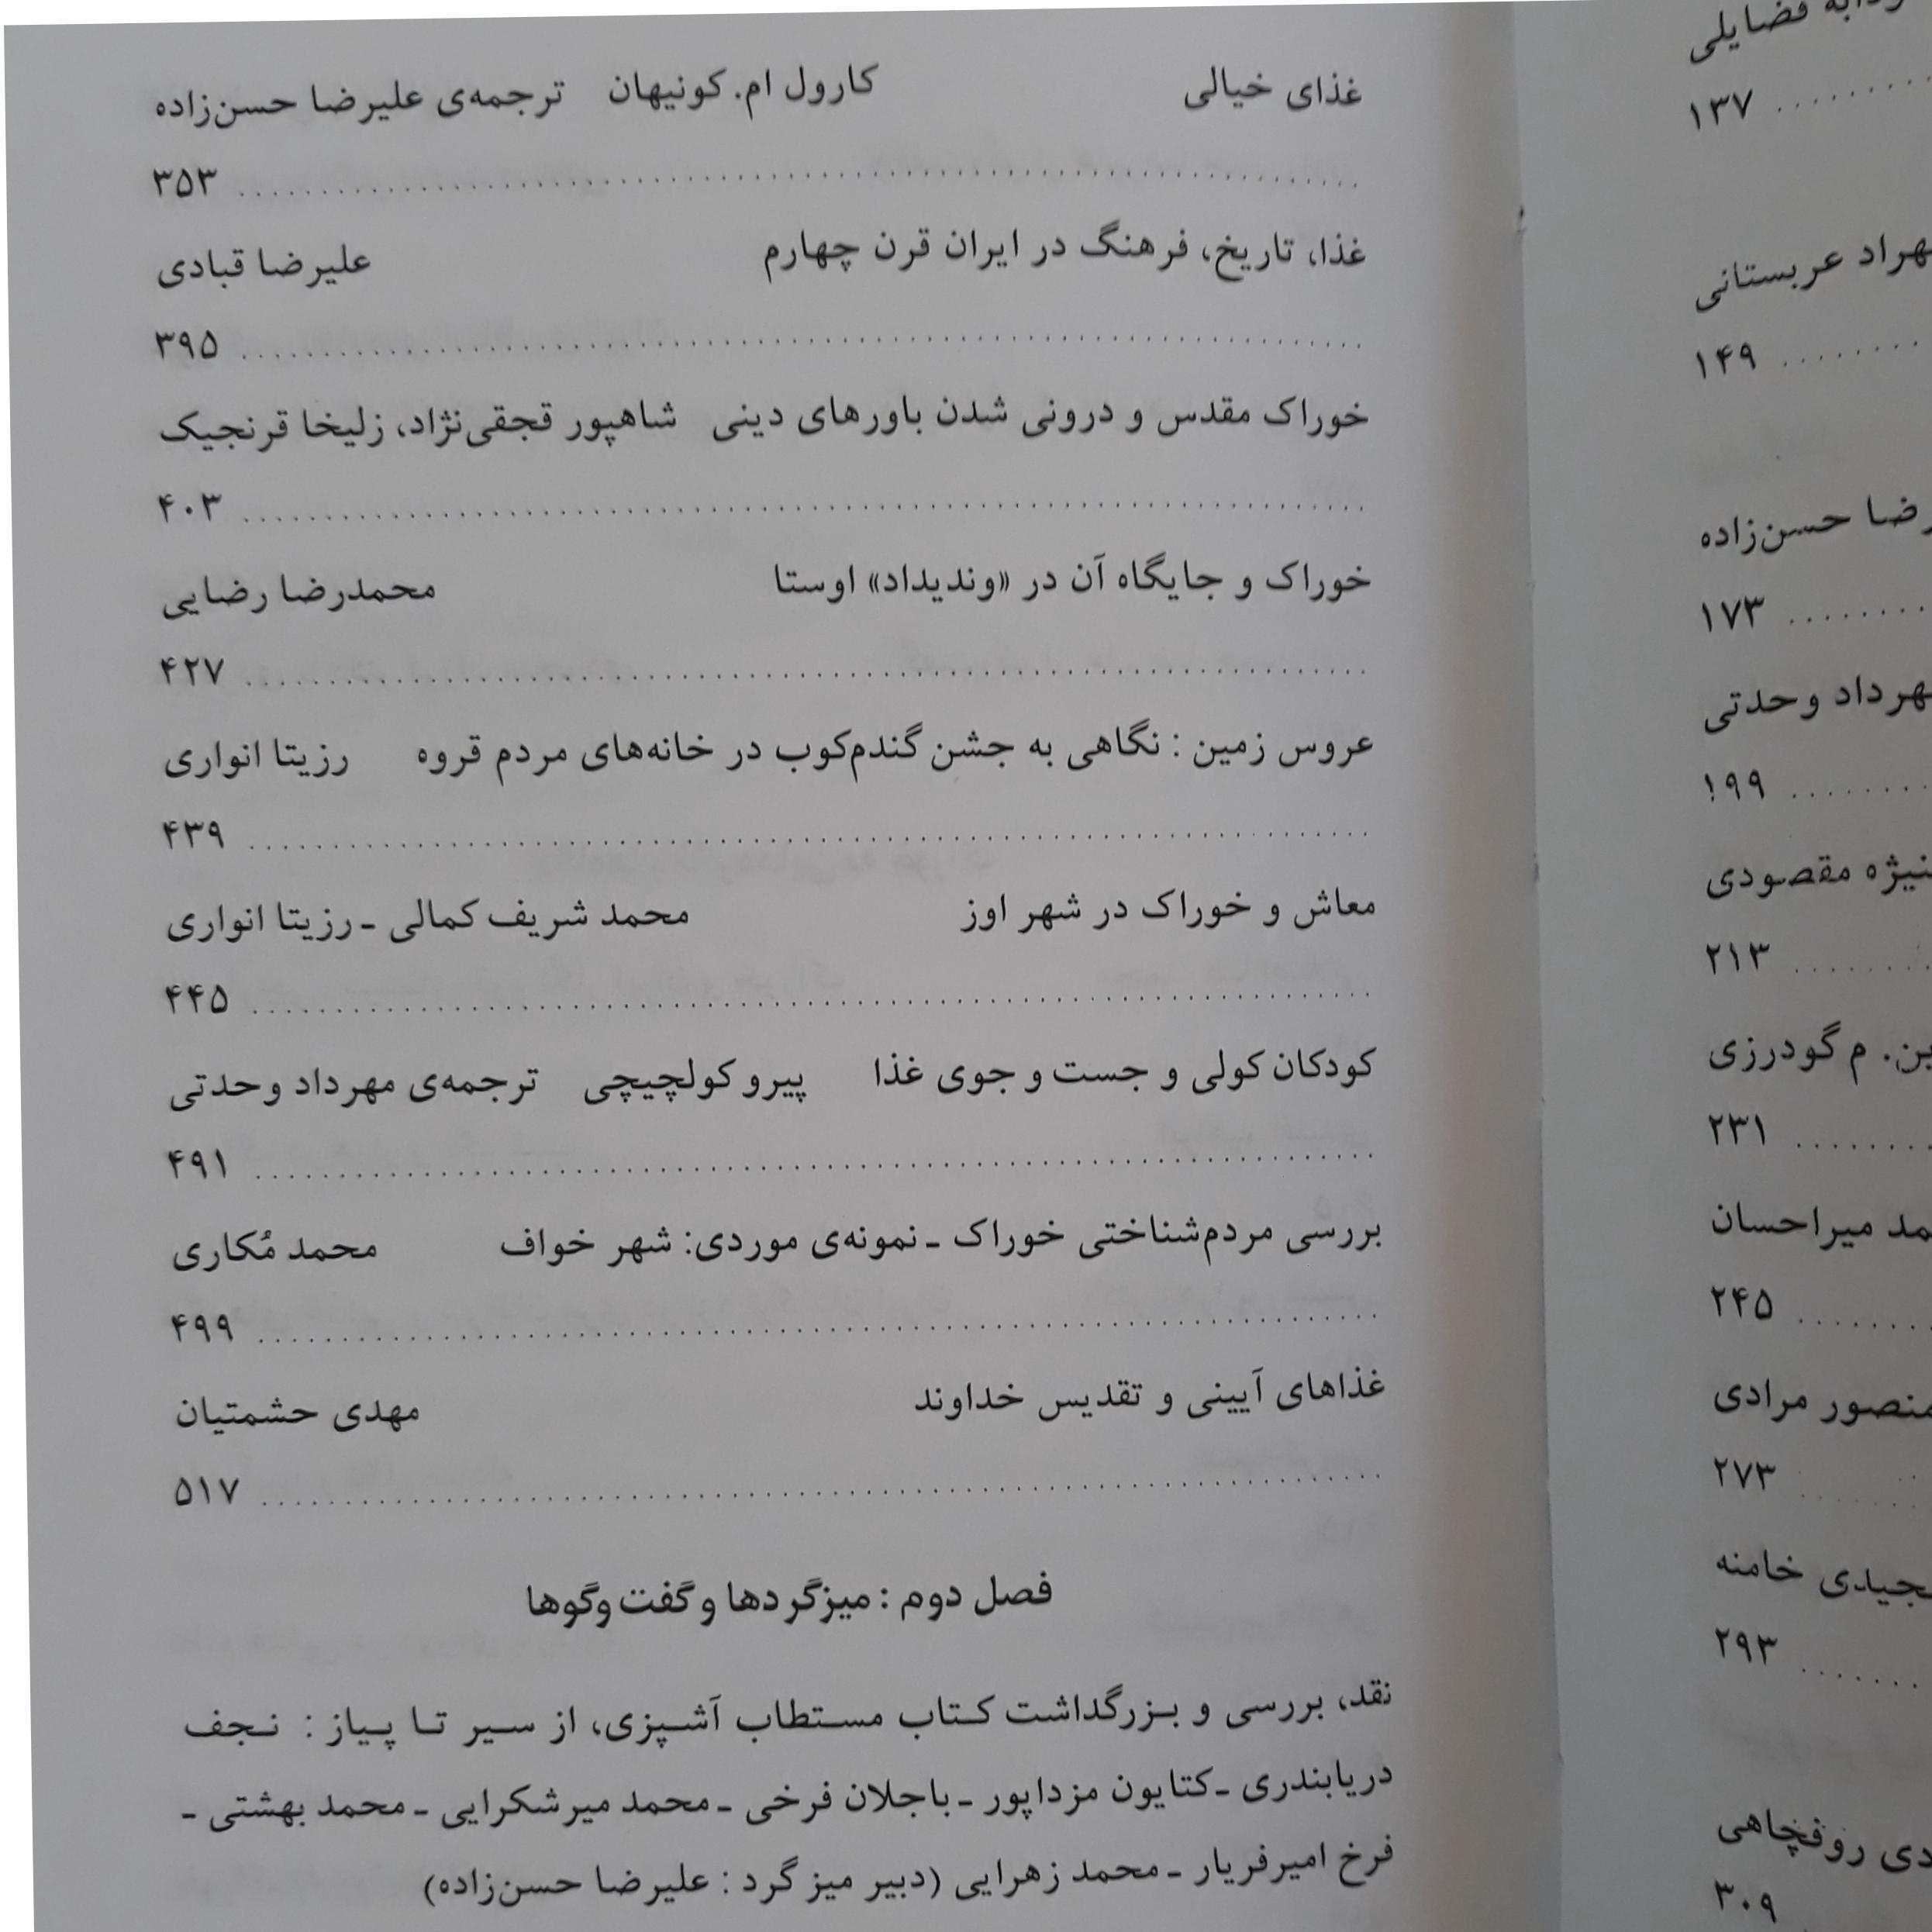 ضایلی
۱۳۷
عربستانی
۱۴۹
حسن‌زاده
۱۷۳
وحدتی
۱۹۹
مقصودی
۲۱۳
م گودرزی
۲۳۱
میراحسان
۲۴۵
مرادی
۲۷۳
خامنه
۲۹۳
روفچاهی
۳۰۹
غذای خیالی کارول ام. کونیهان ترجمه‌ی علیرضا حسن‌زاده
۳۵۳
غذا، تاریخ، فرهنگ در ایران قرن چهارم علیرضا قبادی
۳۹۵
خوراک مقدس و درونی شدن باورهای دینی شاهپور قجقی‌نژاد، زلیخا قرنجیک
۴۰۳
خوراک و جایگاه آن در «وندیداد» اوستا محمدرضا رضایی
۴۲۷
عروس زمین : نگاهی به جشن گندم‌کوب در خانه‌های مردم قروه رزیتا انواری
۴۳۹
معاش و خوراک در شهر اوز محمد شریف کمالی ـ رزیتا انواری
۴۴۵
کودکان کولی و جست و جوی غذا پیرو کولچیچی ترجمه‌ی مهرداد وحدتی
۴۹۱
بررسی مردم‌شناختی خوراک ـ نمونه‌ی موردی: شهر خواف محمد مُکاری
۴۹۹
غذاهای آیینی و تقدیس خداوند مهدی حشمتیان
۵۱۷
فصل دوم : میزگردها و گفت وگوها
نقد، بررسی و بزرگداشت کتاب مستطاب آشپزی، از سیر تا پیاز : نجف
دریابندری ـ کتایون مزداپور ـ باجلان فرخی ـ محمد میرشکرایی ـ محمد بهشتی ـ
فرخ امیرفریار ـ محمد زهرایی (دبیر میز گرد : علیرضا حسن‌زاده)